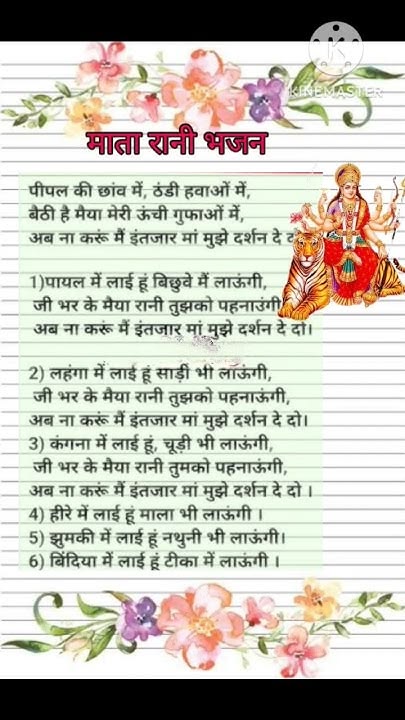 KINEMASTER
माता रानी भजन
पीपल की छांव में, ठंडी हवाओं में,
बैठी है मैया मेरी ऊंची गुफाओं में,
अब ना करूं मैं इंतजार मां मुझे दर्शन दे
1)पायल में लाई हूं बिछुवे मैं लाऊंगी,
जी भर के मैया रानी तुझको पहनाउंगी
अब ना करूं मैं इंतजार मां मुझे दर्शन दे दो।
2) लहंगा में लाई हूं साड़ी भी लाऊंगी,
जी भर के मैया रानी तुझको पहनाऊंगी,
अब ना करूं मैं इंतजार मां मुझे दर्शन दे दो।
3) कंगना में लाई हूं, चूड़ी भी लाऊंगी,
जी भर के मैया रानी तुमको पहनाऊंगी,
अब ना करूं मैं इंतजार मां मुझे दर्शन दे दो ।
4) हीरे में लाई हूं माला भी लाऊंगी ।
5) झुमकी में लाई हूं नथुनी भी लाऊंगी।
6) बिंदिया में लाई हूं टीका में लाऊंगी ।